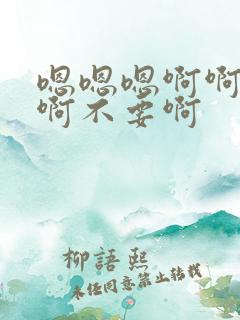 嗯嗯嗯啊啊
啊不要啊
柳語熙
未经同意禁止转载